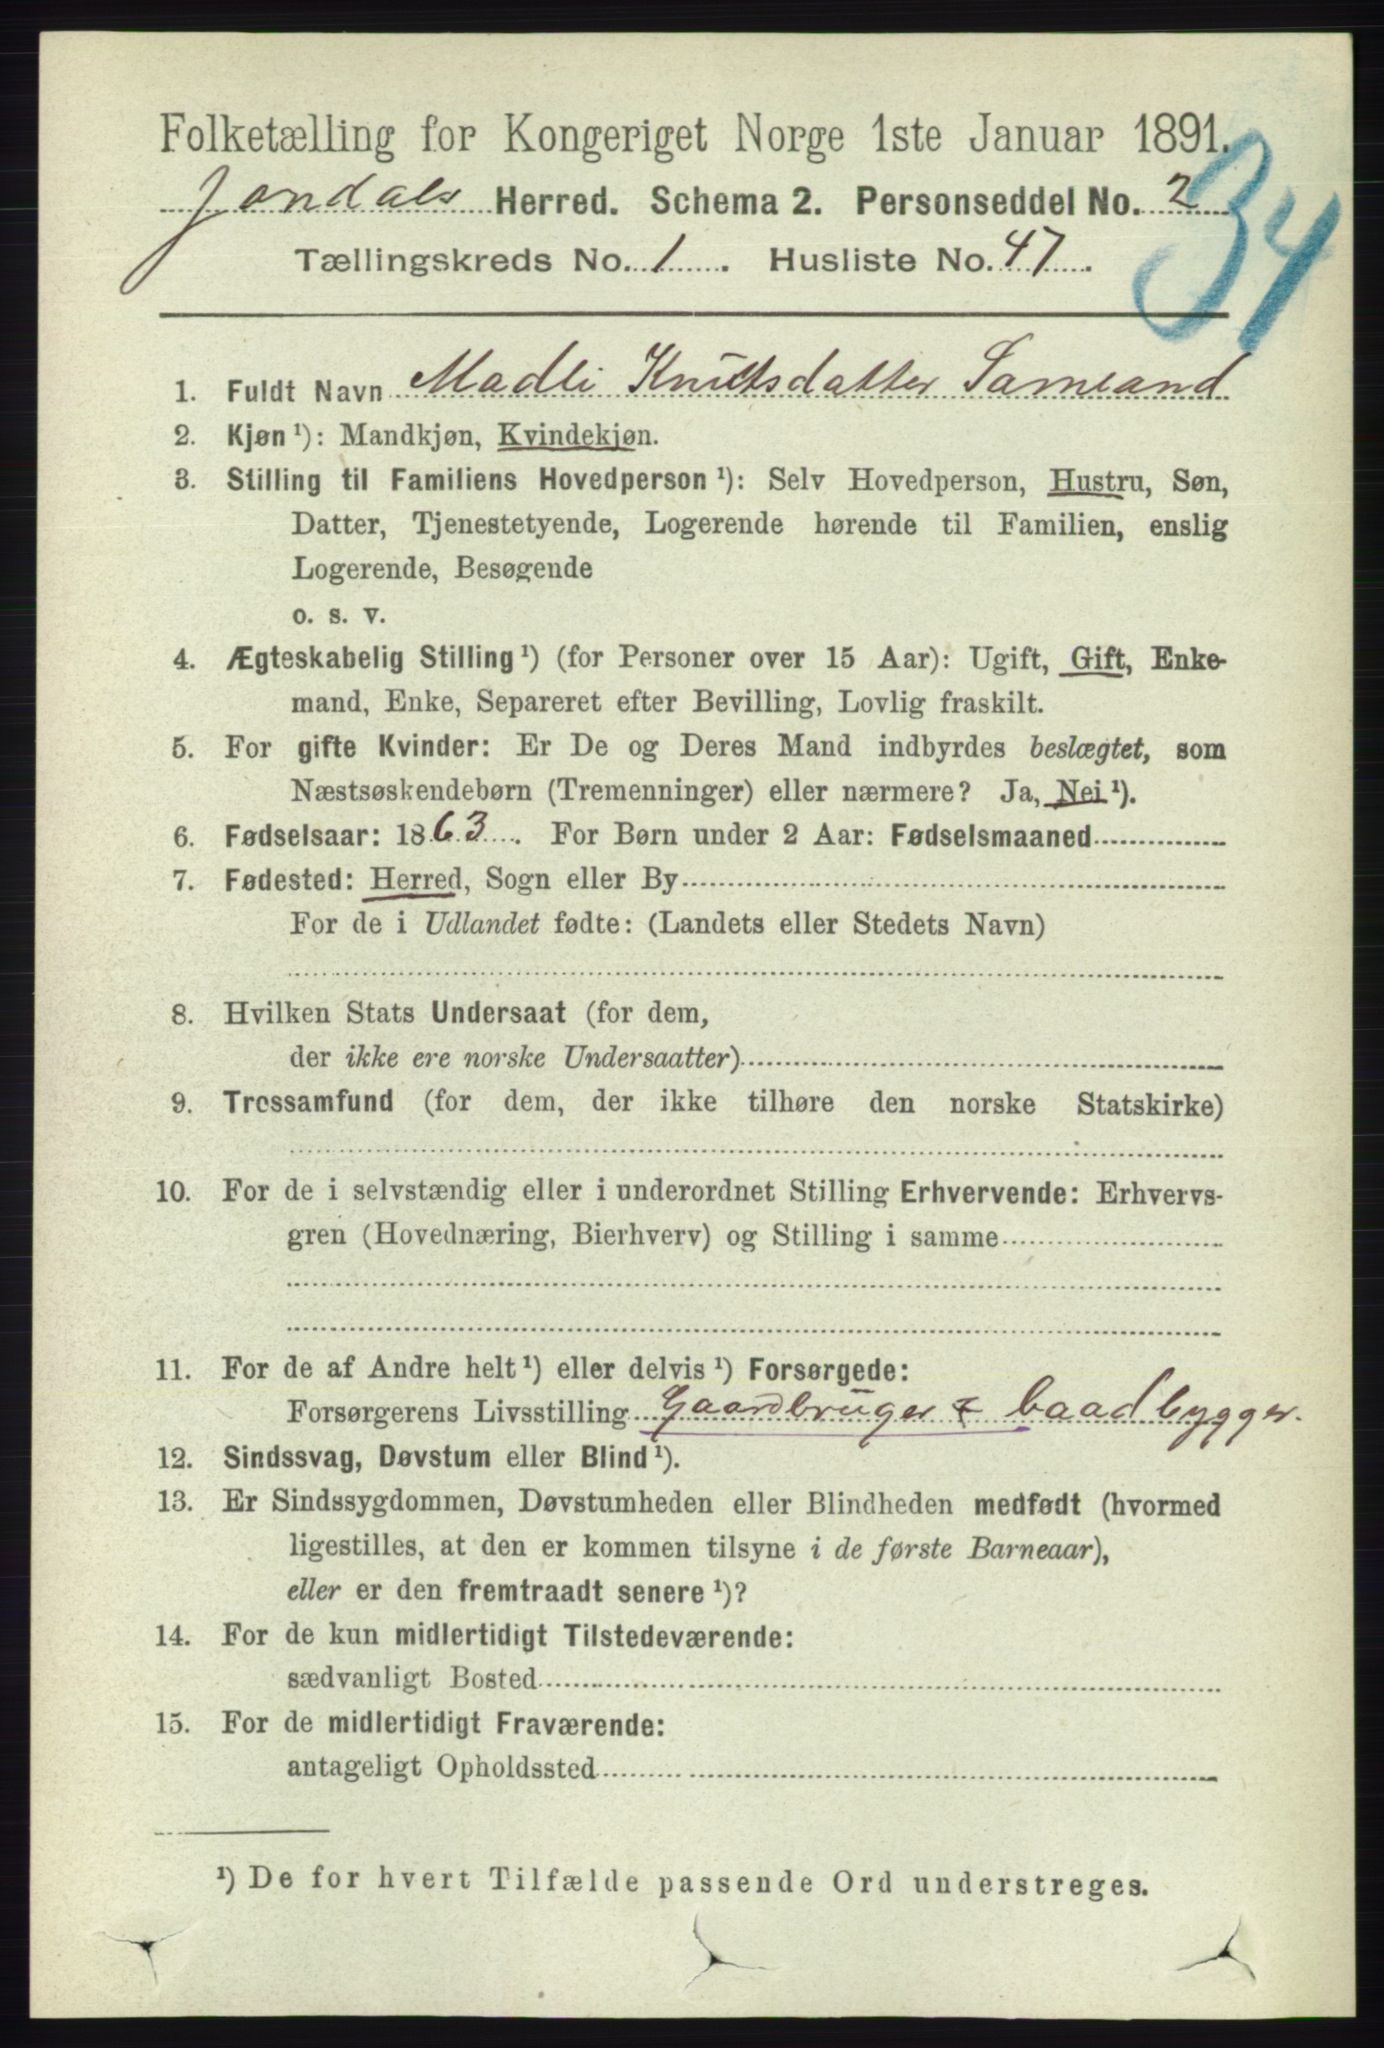 Folketælling for Kongeriget Norge 1ste Januar 1891.
34
Jondals Herred. Schema 2. Personseddel No. 2
Tællingskreds No. 1. Husliste No. 47.
1. Fuldt Navn Madli Knutsdatter Samland
2. Kjøn ¹): Mandkjøn, Kvindekjøn.
3. Stilling til Familiens Hovedperson ¹): Selv Hovedperson, Hustru, Søn,
Datter, Tjenestetyende, Logerende hørende til Familien, enslig
Logerende, Besøgende
o. s. v.
4. Ægteskabelig Stilling ¹) (for Personer over 15 Aar): Ugift, Gift, Enke-
mand, Enke, Separeret efter Bevilling, Lovlig fraskilt.
5. For gifte Kvinder: Er De og Deres Mand indbyrdes beslægtet, som
Næstsøskendebørn (Tremenninger) eller nærmere? Ja, Nei ¹).
6. Fødselsaar: 1863. For Børn under 2 Aar: Fødselsmaaned
7. Fødested: Herred, Sogn eller By
For de i Udlandet fødte: (Landets eller Stedets Navn)
8. Hvilken Stats Undersaat (for dem,
der ikke ere norske Undersaatter)
9. Trossamfund (for dem, der ikke tilhøre den norske Statskirke)
10. For de i selvstændig eller i underordnet Stilling Erhvervende: Erhvervs-
gren (Hovednæring, Bierhverv) og Stilling i samme
11. For de af Andre helt ¹) eller delvis ¹) Forsørgede:
Forsørgerens Livsstilling Gaardbruger & baadbygger.
12. Sindssvag, Døvstum eller Blind ¹).
13. Er Sindssygdommen, Døvstumheden eller Blindheden medfødt (hvormed
ligestilles, at den er kommen tilsyne i de første Barneaar),
eller er den fremtraadt senere ¹)?
14. For de kun midlertidigt Tilstedeværende:
sædvanligt Bosted
15. For de midlertidigt Fraværende:
antageligt Opholdssted
¹) De for hvert Tilfælde passende Ord understreges.